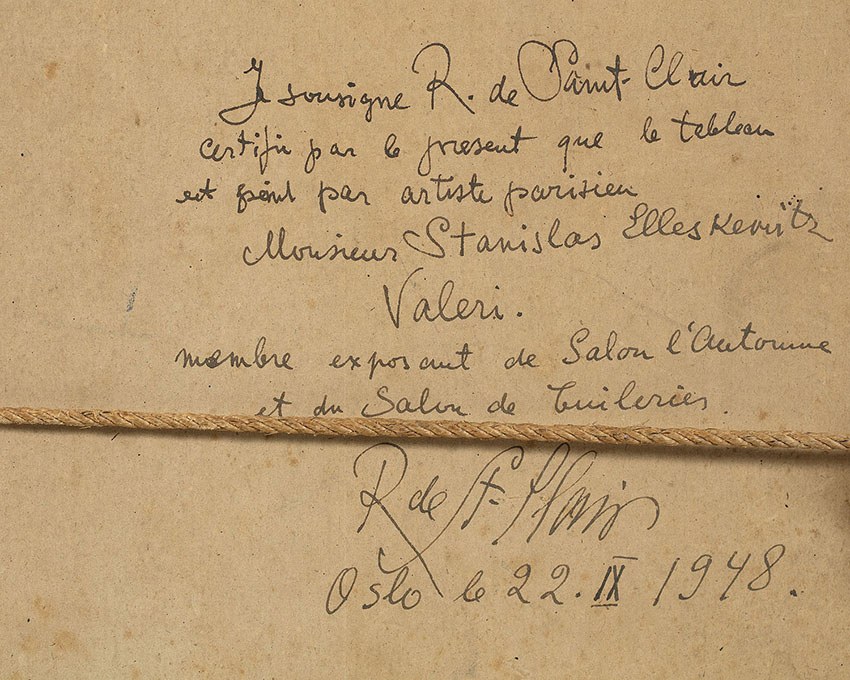 Je sousigne R. de Saint-Clair
certifie par le present que le tableau
est peint par artiste parisien
Monsieur Stanislas Elleskeviïtz
Valeri.
membre exposant de Salon l'Automne
et du Salon de Tuileries.
R de St-Clair
Oslo le 22. IX 1948.